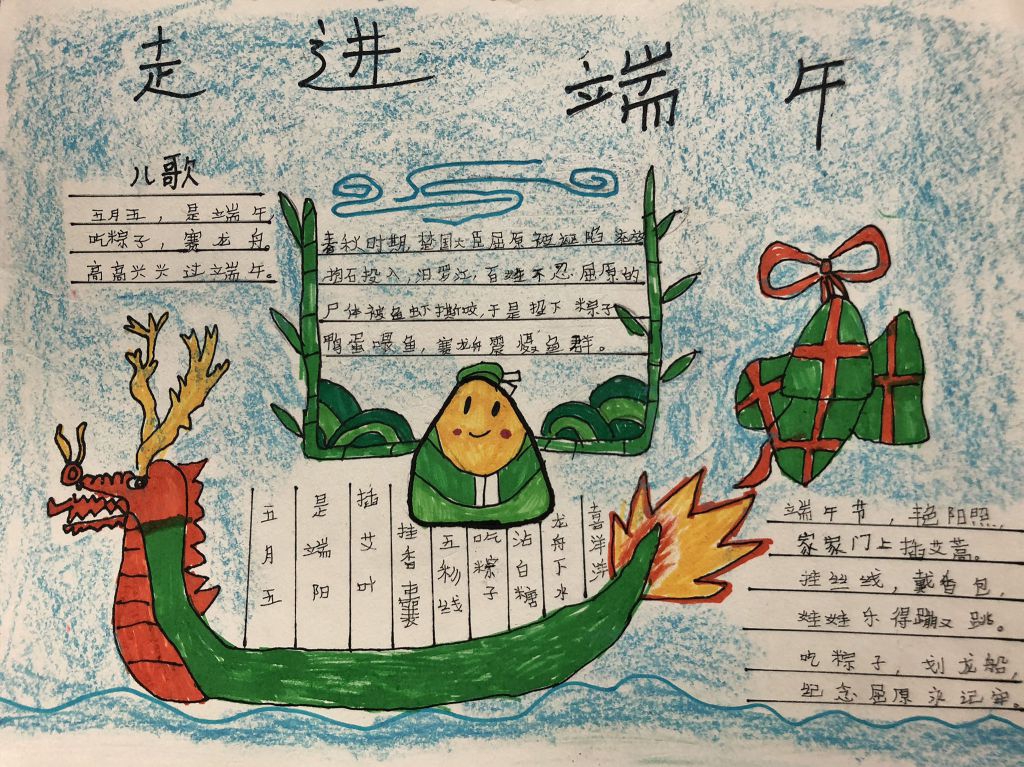 走进端午
儿歌
五月五，是端午，
吃粽子，赛龙舟。
高高兴兴过端午。
春秋时期，楚国大臣屈原被诬陷
抱石投入，汨罗江，百姓不忍屈原的
尸体被鱼虾撕咬，于是投下粽子
鸭蛋喂鱼，赛龙舟震慑鱼群。
五月五
是端阳
插艾叶
挂香囊
五彩线
吃粽子
沾白糖
龙舟下水
喜洋洋
端午节，艳阳照，
家家门上插艾蒿。
挂丝线，戴香包，
娃娃乐得蹦又跳。
吃粽子，划龙船，
纪念屈原永记牢。